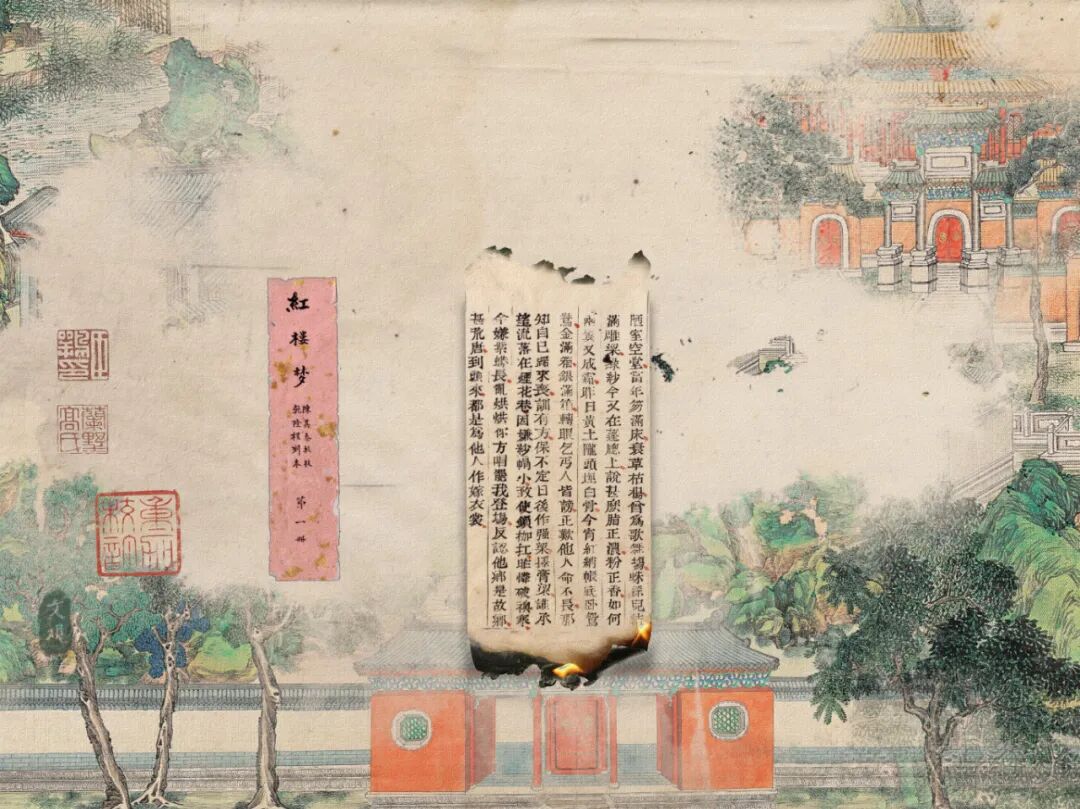 紅楼梦
陳其泰批校
乾隆程刻本
第一冊
陋室空堂當年笏滿床衰草枯楊曾爲歌舞場蛛絲兒結
滿雕梁綠紗今又在蓬牕上說甚麽脂正濃粉正香如何
兩鬢又成霜昨日黃土隴頭埋白骨今宵紅綃帳底臥鴛
鴦金滿箱銀滿箱轉眼乞丐人皆謗正歎他人命不長那
知自己歸來喪訓有方保不定日後作强梁擇膏粱誰承
望流落在煙花巷因嫌紗帽小致使鎖枷扛昨憐破襖寒
今嫌紫蟒長亂烘烘你方唱罷我登塲反認他鄉是故鄉
甚荒唐到頭來都是爲他人作嫁衣裳